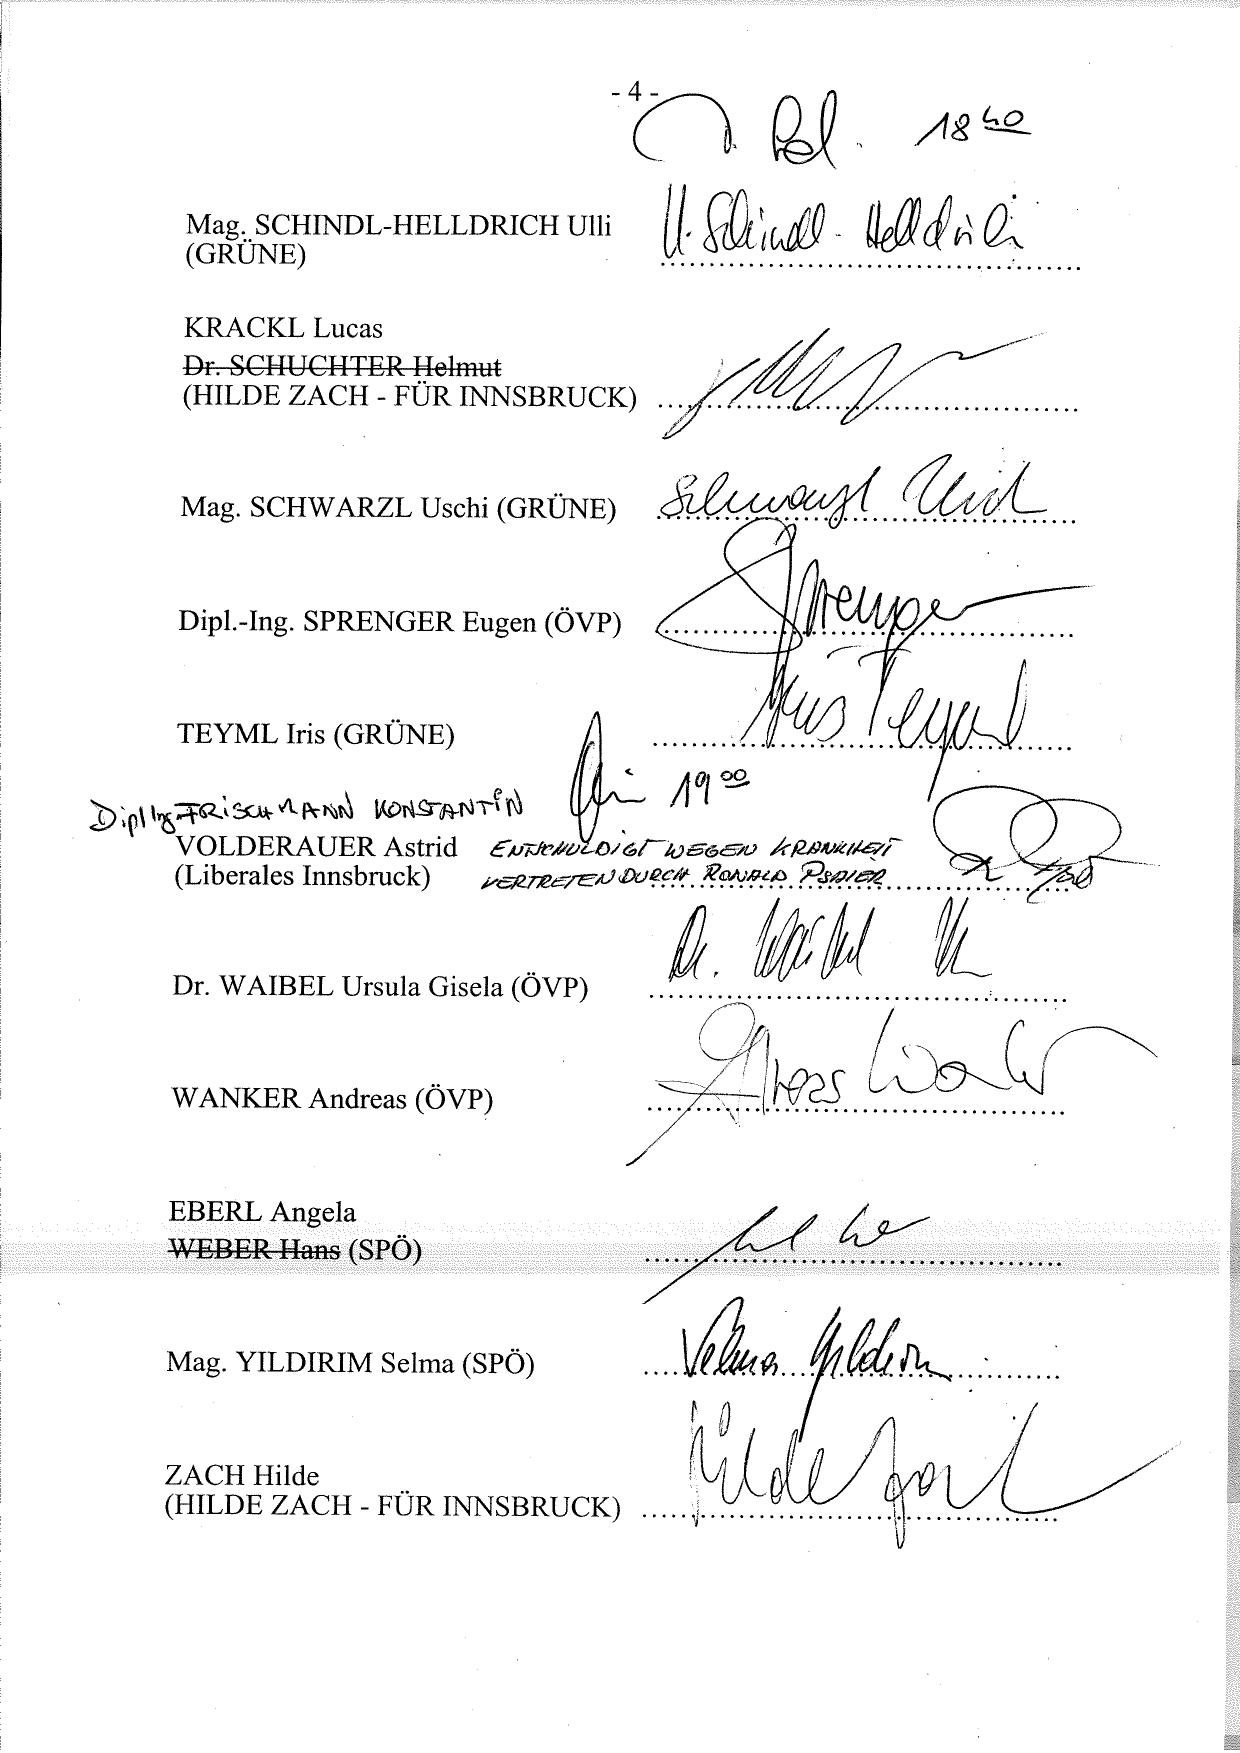 - 4 -
18 40
Mag. SCHINDL-HELLDRICH Ulli
U. Schindl-Helldrich
(GRÜNE)
KRACKL Lucas
Dr. SCHUCHTER Helmut
(HILDE ZACH - FÜR INNSBRUCK)
Mag. SCHWARZL Uschi (GRÜNE) Schwarzl Uschi
Dipl.-Ing. SPRENGER Eugen (ÖVP) Sprenger
TEYML Iris (GRÜNE) Iris Teyml
19 00
Dipl Ing. FRISCHMANN KONSTANTIN
VOLDERAUER Astrid ENTSCHULDIGT WEGEN KRANKHEIT
(Liberales Innsbruck) VERTRETEN DURCH RONALD PSAIER
Dr. WAIBEL Ursula Gisela (ÖVP) Dr. Waibel
WANKER Andreas (ÖVP)
EBERL Angela
WEBER Hans (SPÖ)
Mag. YILDIRIM Selma (SPÖ) Selma Yildirim
ZACH Hilde
Hilde Zach
(HILDE ZACH - FÜR INNSBRUCK)